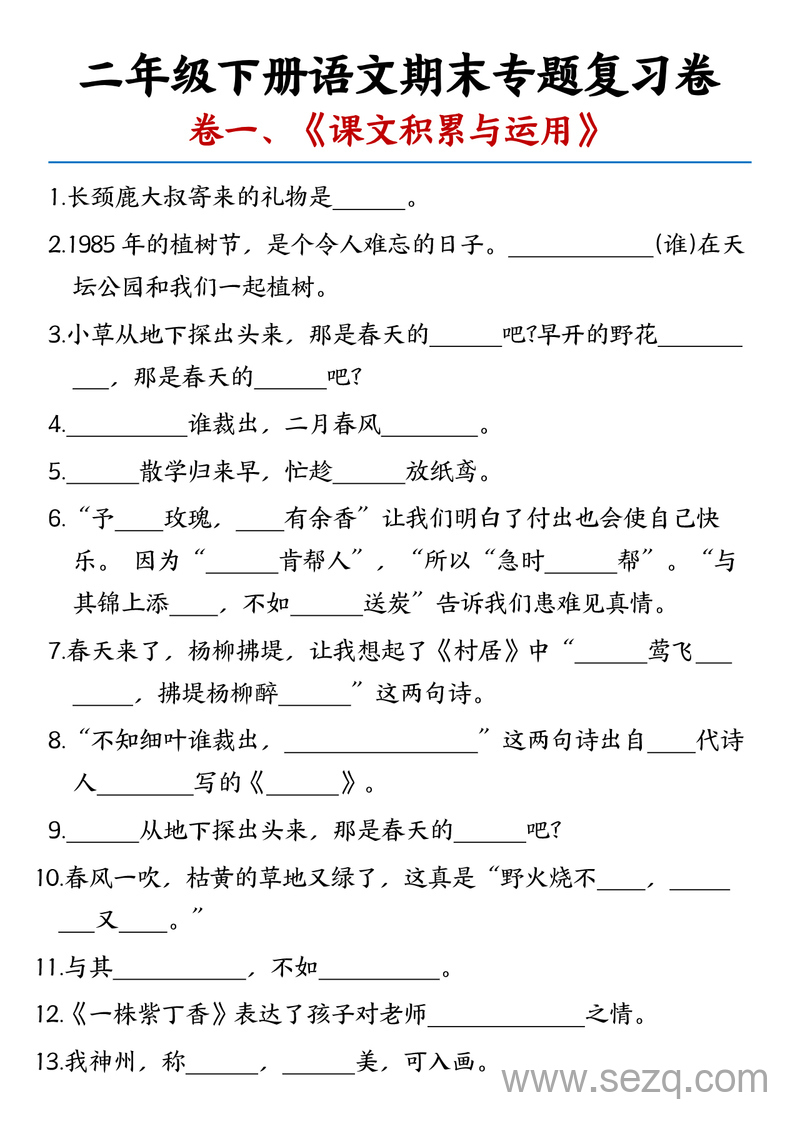 二年级下册语文期末专题复习卷
卷一、《课文积累与运用》
1.长颈鹿大叔寄来的礼物是______。
2.1985 年的植树节，是个令人难忘的日子。____________(谁)在天
坛公园和我们一起植树。
3.小草从地下探出头来，那是春天的______吧?早开的野花_______
___，那是春天的______吧?
4.__________谁裁出，二月春风________。
5.______散学归来早，忙趁______放纸鸢。
6.“予____玫瑰，____有余香”让我们明白了付出也会使自己快
乐。 因为“______肯帮人”，“所以“急时______帮”。“与
其锦上添____，不如______送炭”告诉我们患难见真情。
7.春天来了，杨柳拂堤，让我想起了《村居》中“______莺飞___
_____，拂堤杨柳醉______”这两句诗。
8.“不知细叶谁裁出，________________”这两句诗出自____代诗
人________写的《______》。
9.______从地下探出头来，那是春天的______吧?
10.春风一吹，枯黄的草地又绿了，这真是“野火烧不____，_____
___又____。”
11.与其___________，不如__________。
12.《一株紫丁香》表达了孩子对老师_____________之情。
13.我神州，称______，______美，可入画。
www.sezq.com